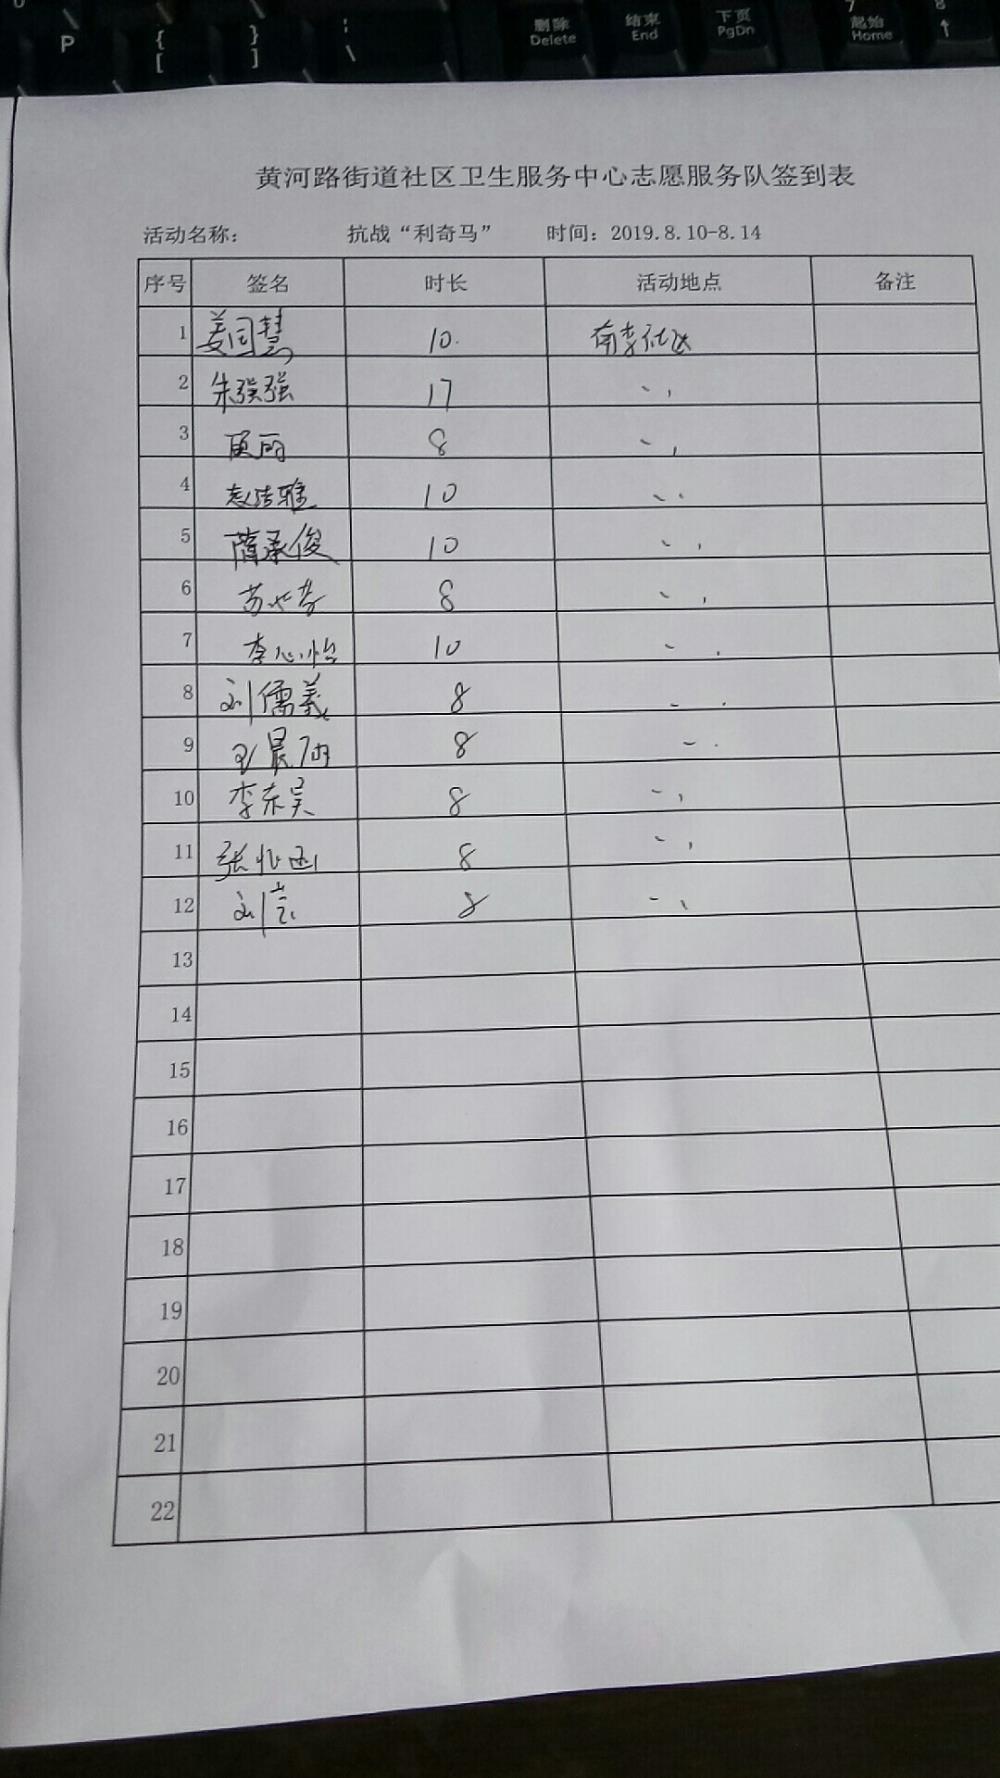 P
{
[
}
]
¦
\
删除
Delete
结束
End
下页
PgDn
7
起始
Home
8
↑
黄河路街道社区卫生服务中心志愿服务队签到表
活动名称： 抗战“利奇马” 时间：2019.8.10-8.14
序号 签名 时长 活动地点 备注
1 姜国慧 10.
2 朱强强 17 〃
3 顾丽 8 〃
4 赵洁雅 10 〃
5 蔺承俊 10 〃
6 8 〃
7 李心怡 10 〃
8 刘儒義 8 〃
9 王晨雨 8 〃
10 李东昊 8 〃
11 8 〃
12 刘 8 〃
13
14
15
16
17
18
19
20
21
22